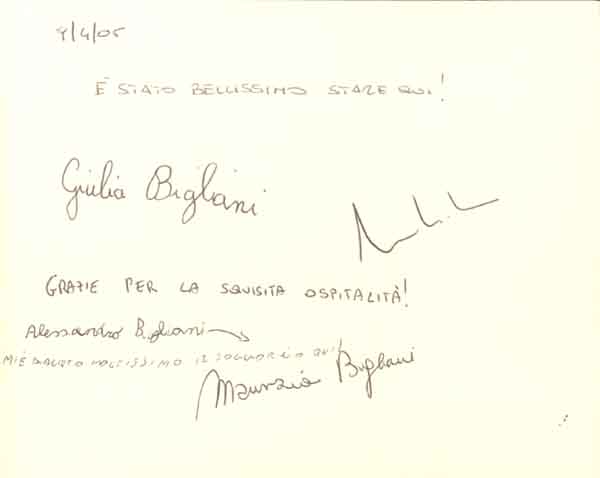 9/4/05
È STATO BELLISSIMO STARE QUI!
Giulia Bigliani
GRAZIE PER LA SQUISITA OSPITALITÀ!
Alessandro Bigliani
MI È PIACIUTO MOLTISSIMO IL SOGGIORNO QUI!
Maurizio Bigliani